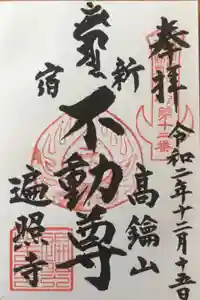 奉拝
令和二年十二月十五日
新宿
不動尊
高鑰山
遍照寺